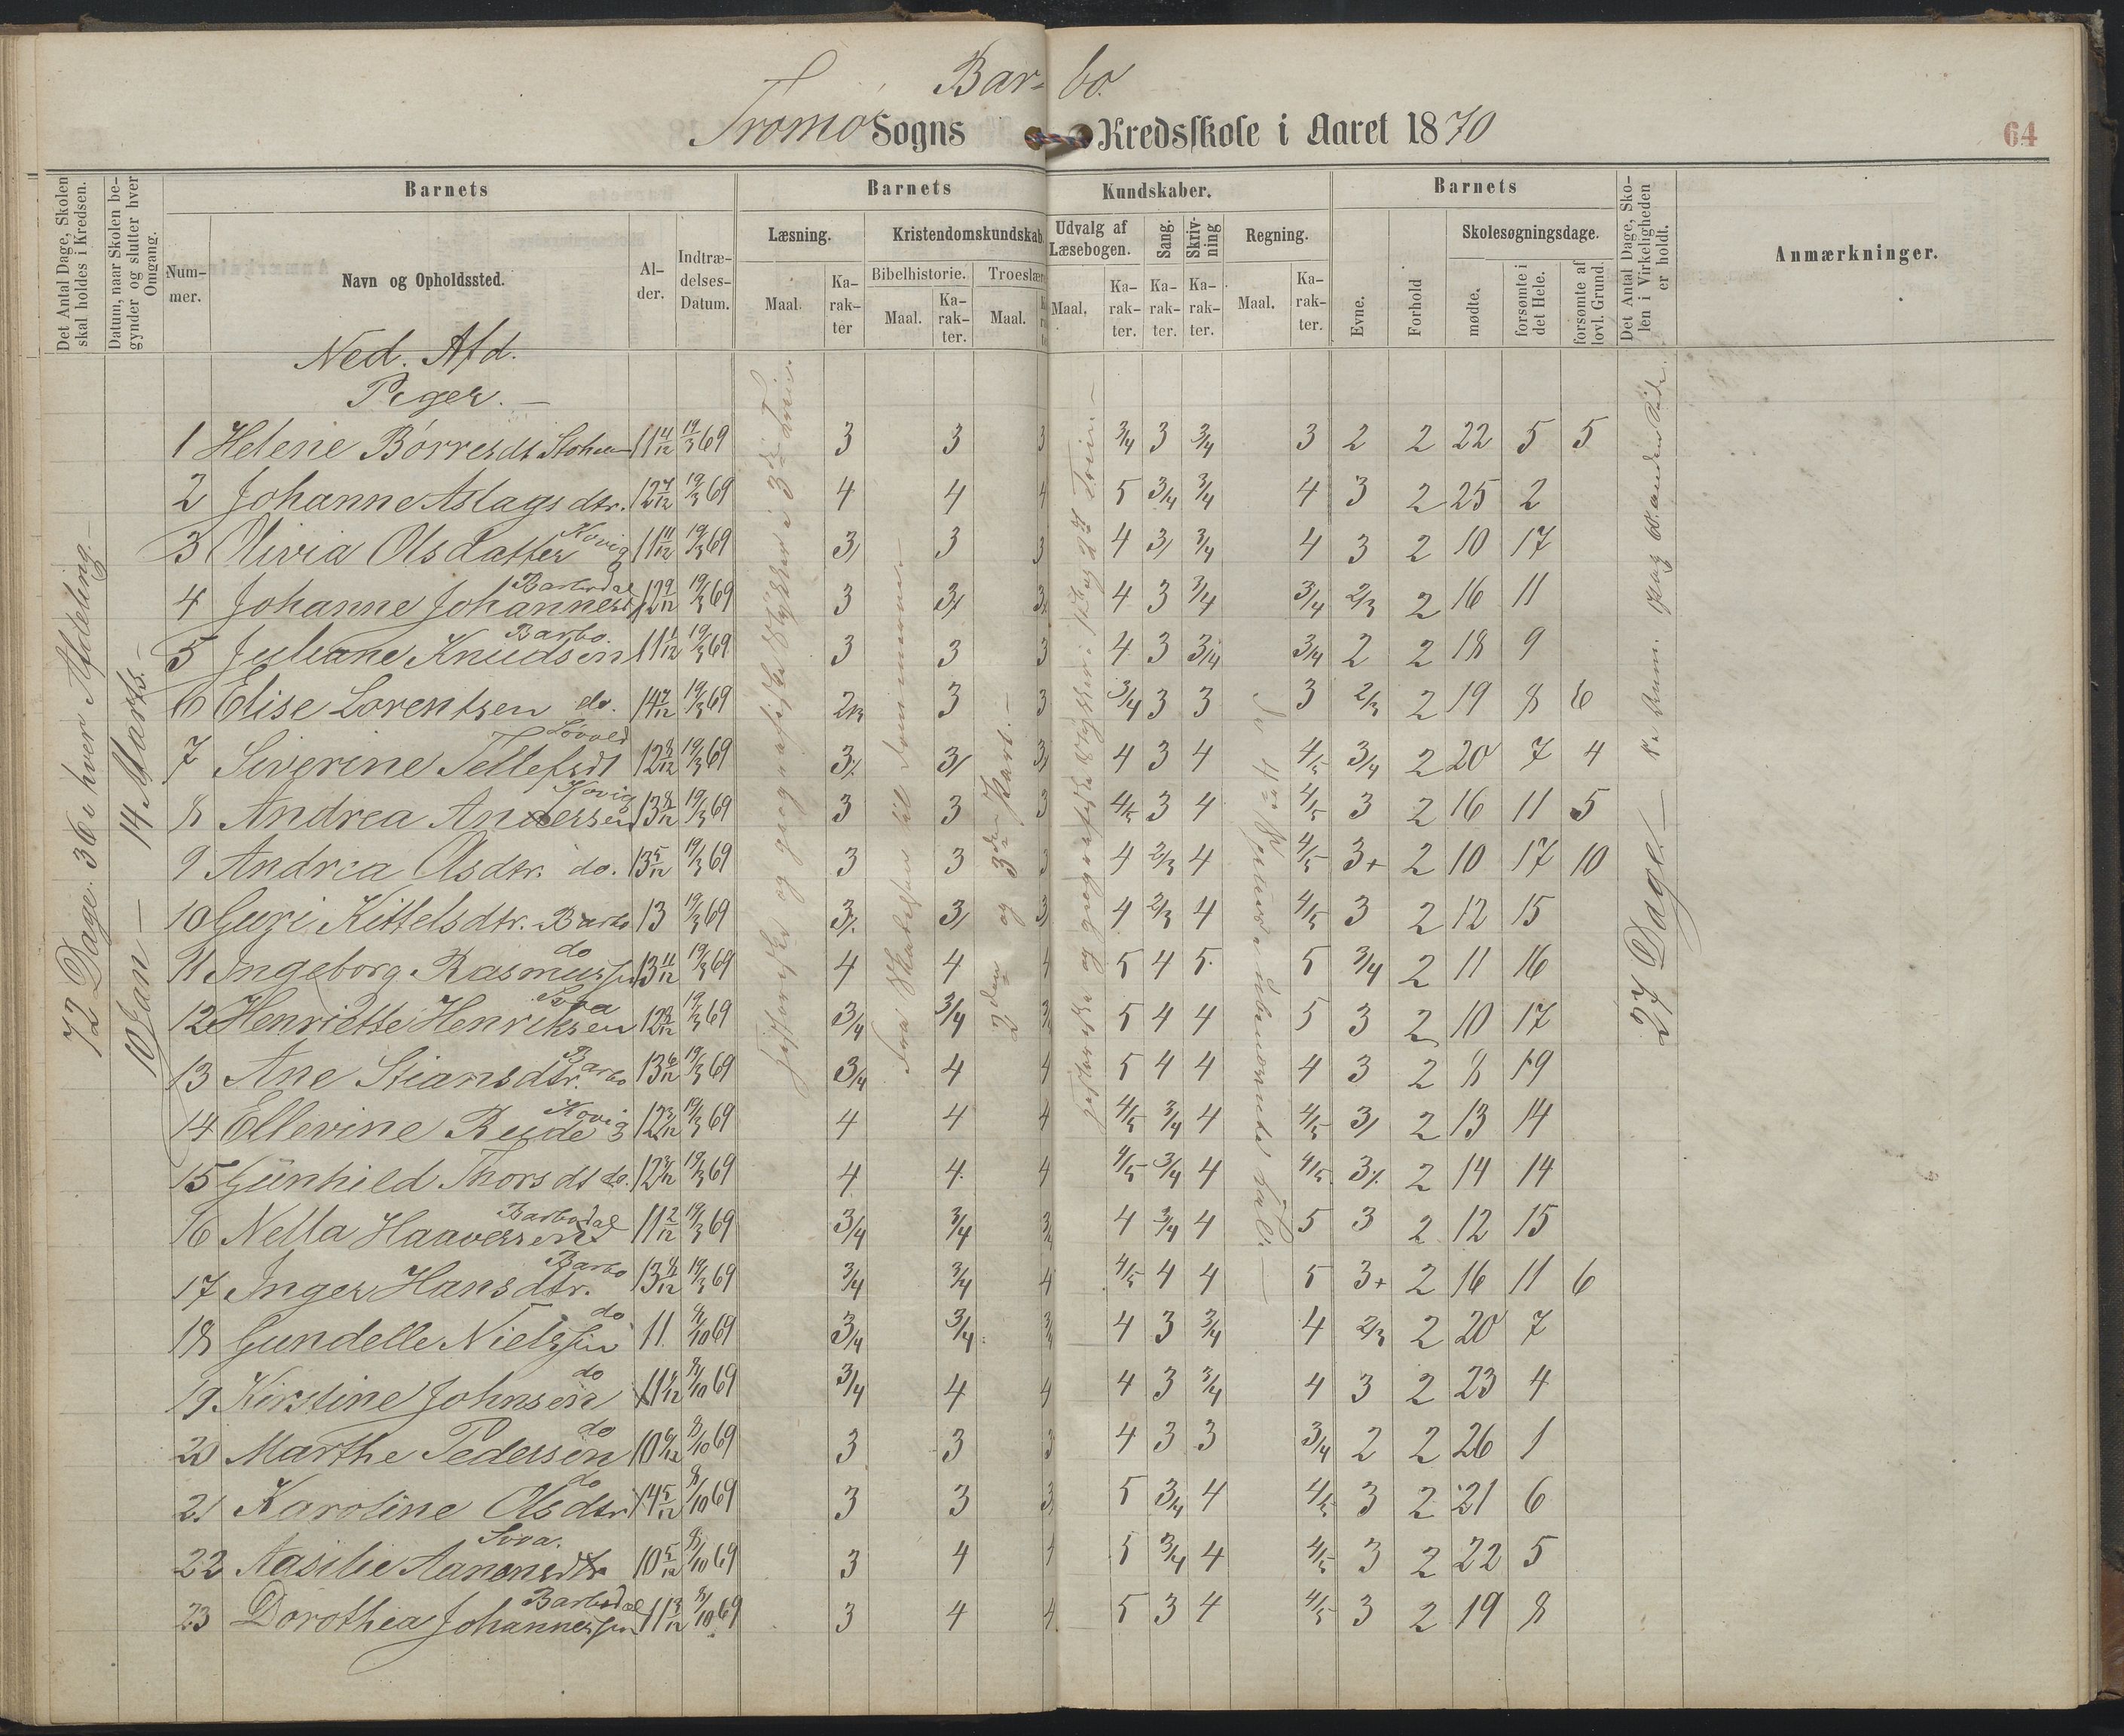 Bar- bo.
Tromø Sogns Kredsskole i Aaret 1870
64
Det Antal Dage, Skolen skal holdes i Kredsen.
Datum, naar Skolen begynder og slutter hver Omgang.
Barnets
Barnets Kundskaber.
Barnets
Det Antal Dage, Skolen i Virkeligheden er holdt.
Anmærkninger.
Nummer.
Navn og Opholdssted.
Alder.
Indtrædelses-Datum.
Læsning.
Kristendomskundskab
Udvalg af Læsebogen.
Sang.
Skrivning
Regning.
Evne.
Forhold
Skolesøgningsdage.
Bibelhistorie.
Troeslær
Maal.
Karakter
Maal.
Karakter.
Maal.
Maal,
Karakter.
Karakter.
Karakter.
Maal.
Karakter.
mødte.
forsømte i det Hele.
forsømte af lovl. Grund.
Ned. Afd.
Piger.
72 Dage. 36 i hver Afdeling.
10 Jan – 14 Marts.
27 Dage.
2den og 3die Part.
1 Helene Børresdt 11 4/12 19/3 69 3 3 3 3/4 3 3/4 3 2 2 22 5 5
2 Johanne Aslagsdtr. 12 7/12 19/3 69 4 4 4 5 3/4 3/4 4 3 2 25 2
3 Olivia Olsdatter 11 11/12 19/3 69 3/ 3 3 4 3/ 3/4 4 3 2 10 17
4 Johanne Johannesd Barbodal 12 9/12 19/3 69 3 3/ 3/ 4 3 3/4 3/4 2/3 2 16 11
5 Juliane Knudsen Barbo. 11 1/12 19/3 69 3 3 3 4 3 3/4 3/4 2 2 18 9
6 Elise Lorentsen do. 14 7/12 19/3 69 2/3 3 3 3/4 3 3 3 2/3 2 19 8 6
7 Siverine Tellefsdt 12 8/12 19/3 69 3/ 3/ 3/ 4 3 4 4/5 3/4 2 20 7 4
8 Andrea Andersen 13 8/12 19/3 69 3 3 3 4/5 3 4 4/5 3 2 16 11 5
9 Andrea Olsdtr. do. 13 5/12 19/3 69 3 3 3 4 2/3 4 4/5 3+ 2 10 17 10
10 Guri Kittelsdtr. Barbo 13 19/3 69 3/ 3/ 3/ 4 2/3 4 4/5 3 2 12 15
11 Ingeborg Rasmussen do 13 11/12 19/3 69 4 4 4 5 4 5 5 3/4 2 11 16
12 Henriette Henriksen 12 8/12 19/3 69 3/4 3/4 3/4 5 4 4 5 3 2 10 17
13 Ane Stiansdtr. Barbo 13 6/12 19/3 69 3/4 4 4 5 4 4 4 3 2 8 19
14 Ellevine Reide 12 3/12 19/3 69 4 4 4 4/5 3/4 4 4/5 3/ 2 13 14
15 Gunhild Thorsdt do. 12 3/12 19/3 69 4 4 4 4/5 3/4 4 4/5 3/ 2 14 14
16 Nella Haaversen Barbodal 11 2/12 19/3 69 3/4 3/4 3/4 4 3/4 4 5 3 2 12 15
17 Inger Hansdtr. Barbo 13 8/12 19/3 69 3/4 3/4 4 4/5 4 4 5 3+ 2 16 11 6
18 Gundelle Nielssen do 11 8/10 69 3/4 3/4 3/4 4 3 3/4 4 2/3 2 20 7
19 Kirstine Johnsen do 8/10 69 3/4 4 4 4 3 3/4 4 3 2 23 4
20 Marthe Pedersen do 8/10 69 3 3 3 4 3 3 3/4 2 2 26 1
21 Karoline Olsdtr do 14 5/12 8/10 69 3 3 3 5 3/4 4 4/5 3 2 21 6
22 Aasilie 10 5/12 8/10 69 3 4 4 5 3/4 4 4/5 3 2 22 5
23 Dorothea Johannessen Barbodal 11 3/12 8/10 69 3 4 4 5 3 4 4/5 3 2 19 8